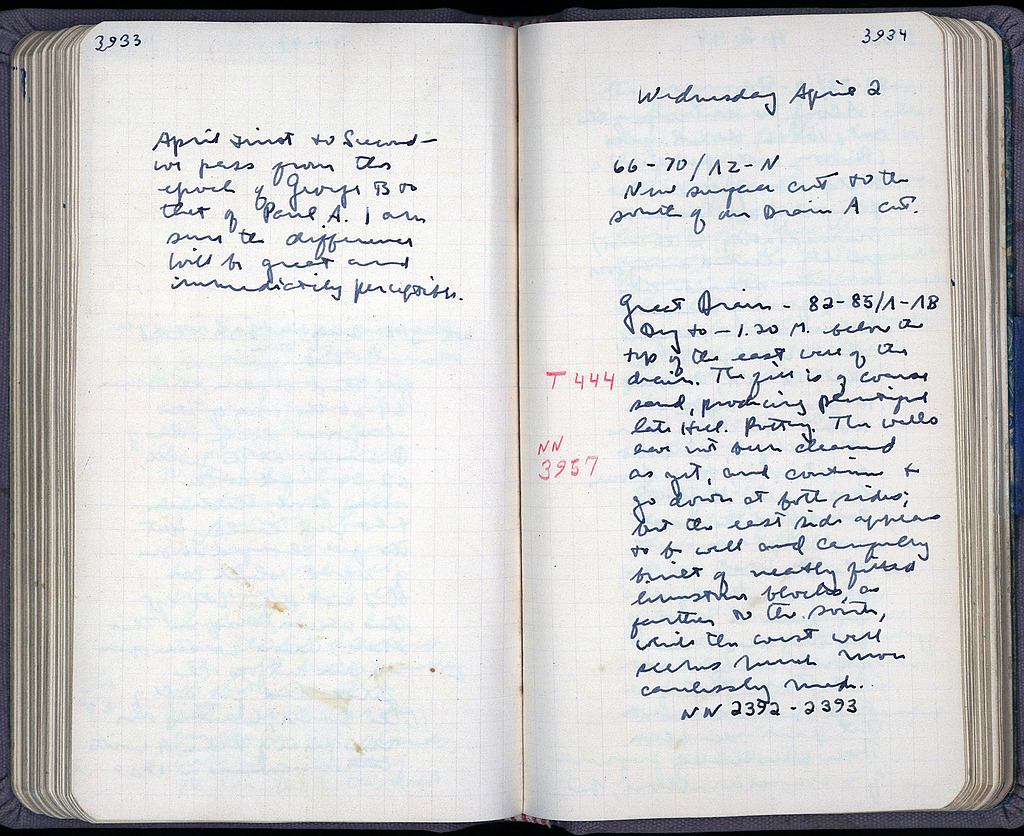 3933
April First to Second –
we pass from the
epoch of George B to
that of Paul A. I am
sure the difference
will be great and
immediately perceptible.
3934
Wednesday April 2
66-70/12-N
New surface cut to the
south of our Drain A cut.
Great Drain - 82-85/1-18
Dug to -1.20 M. below the
top of the east wall of the
T 444
drain. The fill is of coarse
sand, producing plentiful
late Hell. Pottery. The walls
NN
have not been cleaned
3957
as yet, and continue to
go down at both sides;
but the east side appears
to be well and carefully
built of neatly fitted
limestone blocks, as
further to the south,
while the west wall
seems much more
carelessly made.
NN 2392-2393